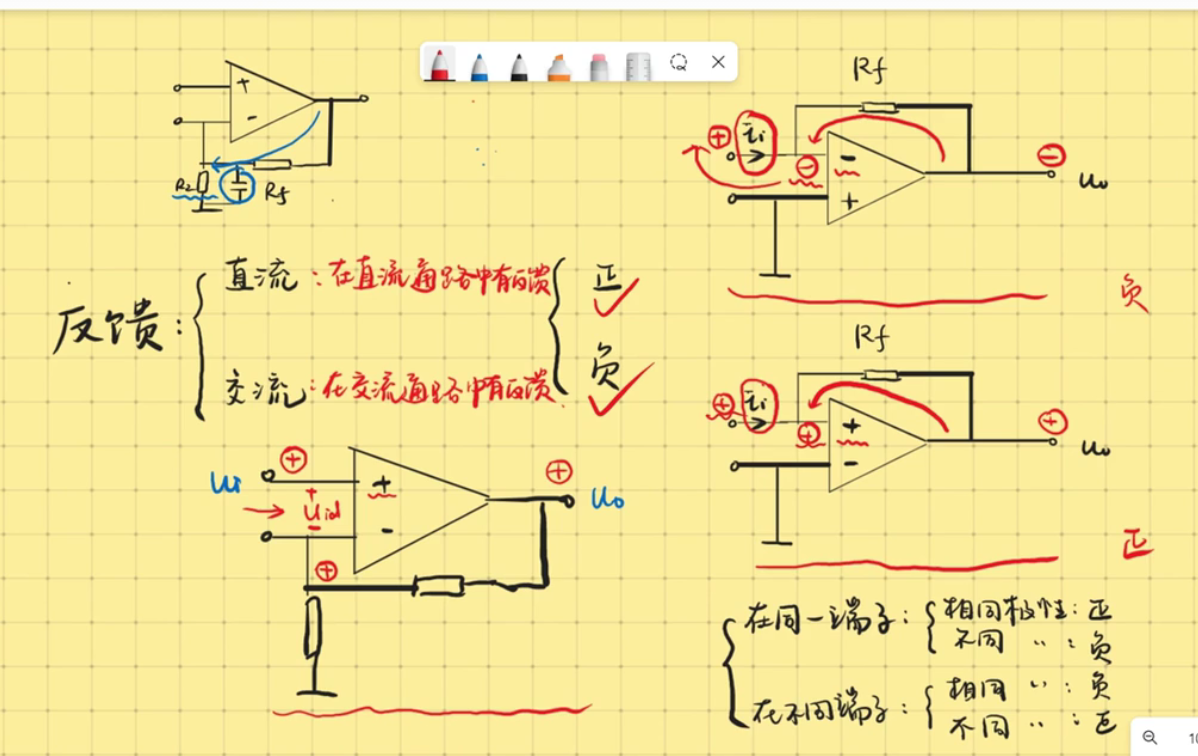 +
-
R₂
Rf
反馈:
直流:在直流通路中有反馈
交流:在交流通路中有反馈
正
负
Ui
+
+
Uid
-
+
-
+
+
Uo
Rf
+
ii
-
-
+
-
Uo
负
Rf
+
ii
+
+
-
+
Uo
正
在同一端子:
相同极性:正
不同 〃 :负
在不同端子:
相同 〃 :负
不同 〃 :正
10